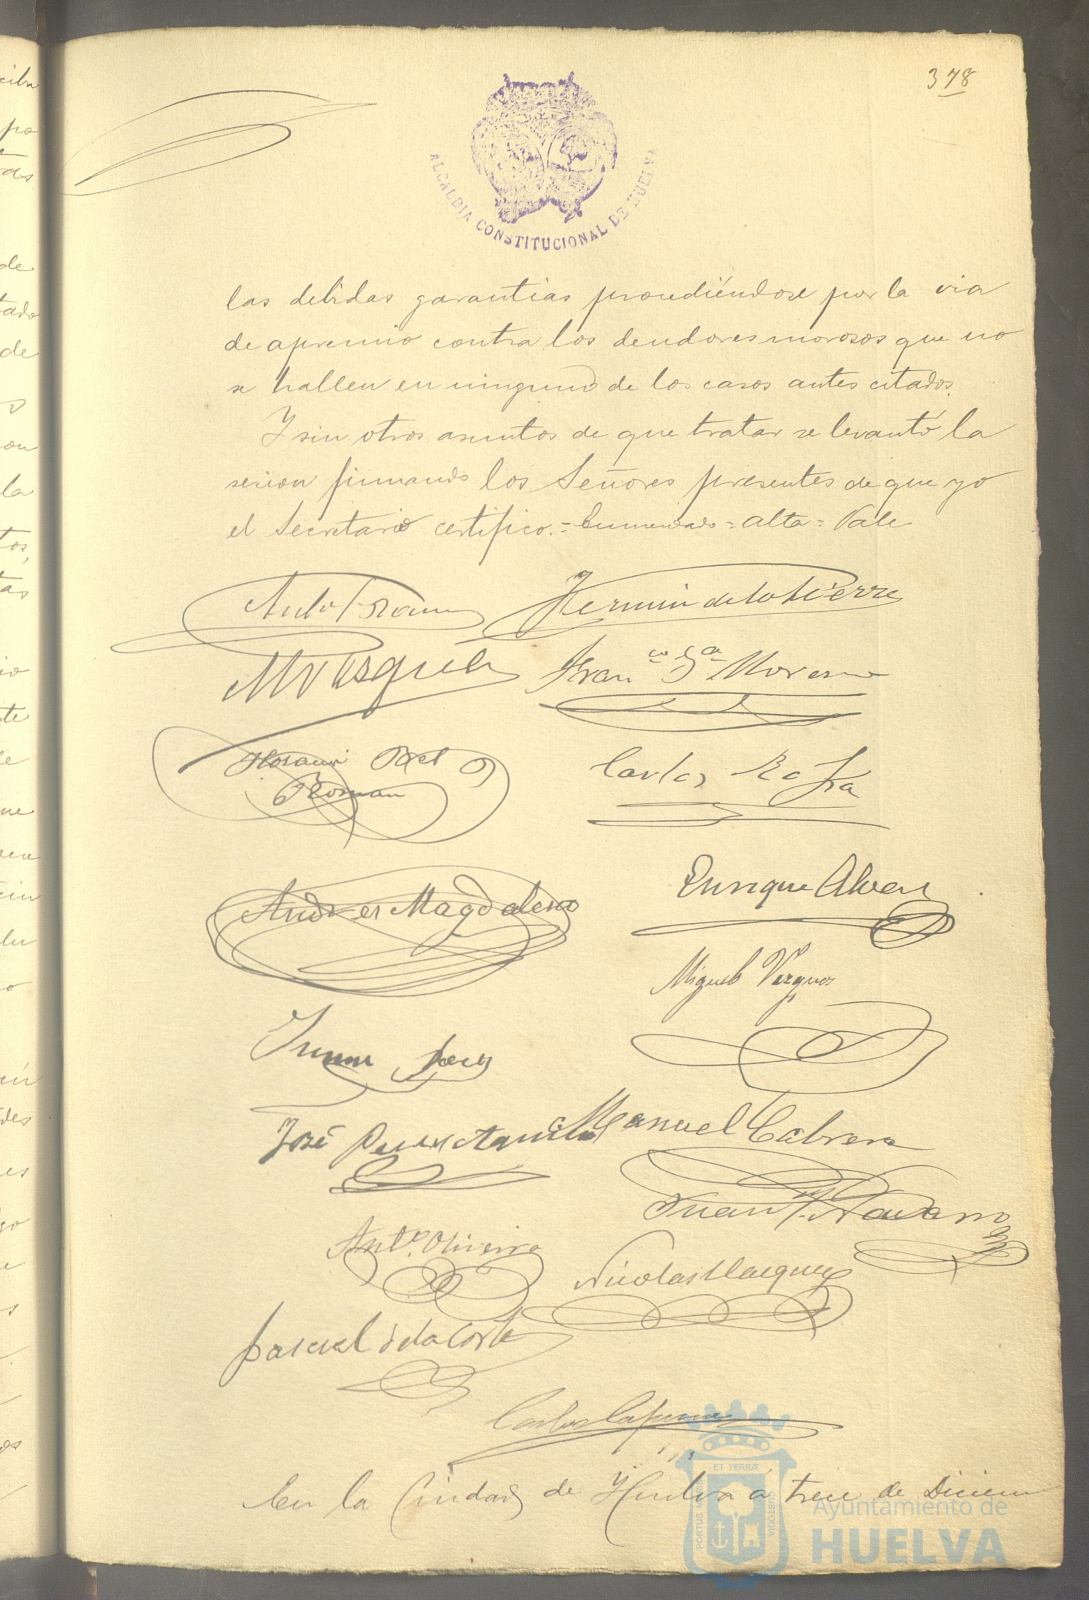 378
ALCALDIA CONSTITUCIONAL DE HUELVA
las debidas garantias procediéndose por la via
de apremio contra los deudores morosos que no
se hallen en ninguno de los casos antes citados.
Y sin otros asuntos de que tratar se levantó la
sesion firmando los Señores presentes de que yo
el Secretario certifico.= Enmendado = alta = Vale
Fermin de la Sierra
M Vazquez
Franco Ga Moreno
Horacio Bel
Roman
Carlos Rofa
Andres Magdaleno
Enrique Alvarez
Miguel Vazquez
José
Manuel Cabrera
Juan Navarro
Anto. Oliveira
Nicolas Vazquez
Pascual de la Corte
Carlos
En la Ciudad de Huelva á trece de Diciem
PORTUS
ET TERRÆ
CUSTODIA
Ayuntamiento de
HUELVA